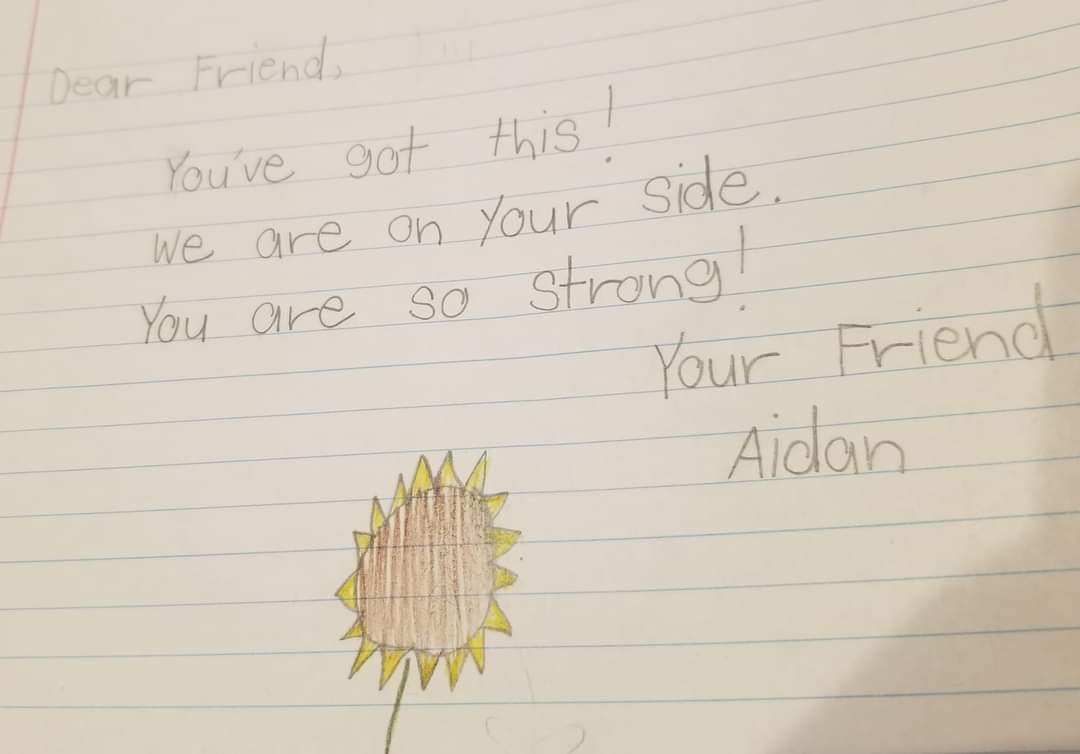 Dear Friend,
You've got this!
We are on your side.
You are so strong!
Your Friend
Aidan